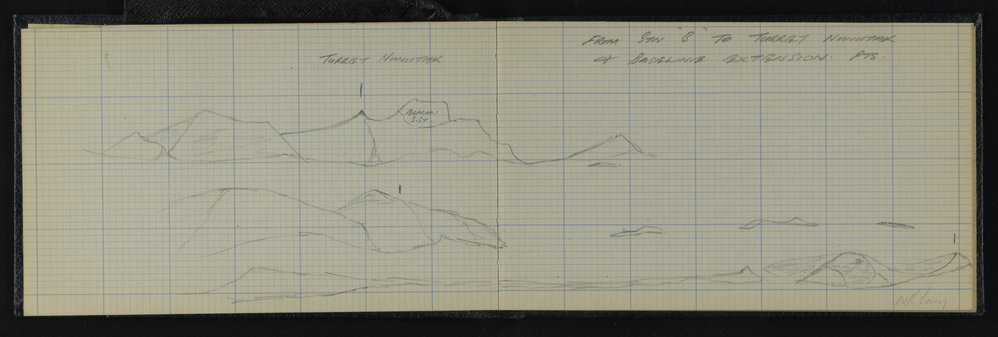 TURRET NUNUTAK
FROM STN "B" TO TURRET NUNUTAK
& BASELINE EXTENSION. PTS.